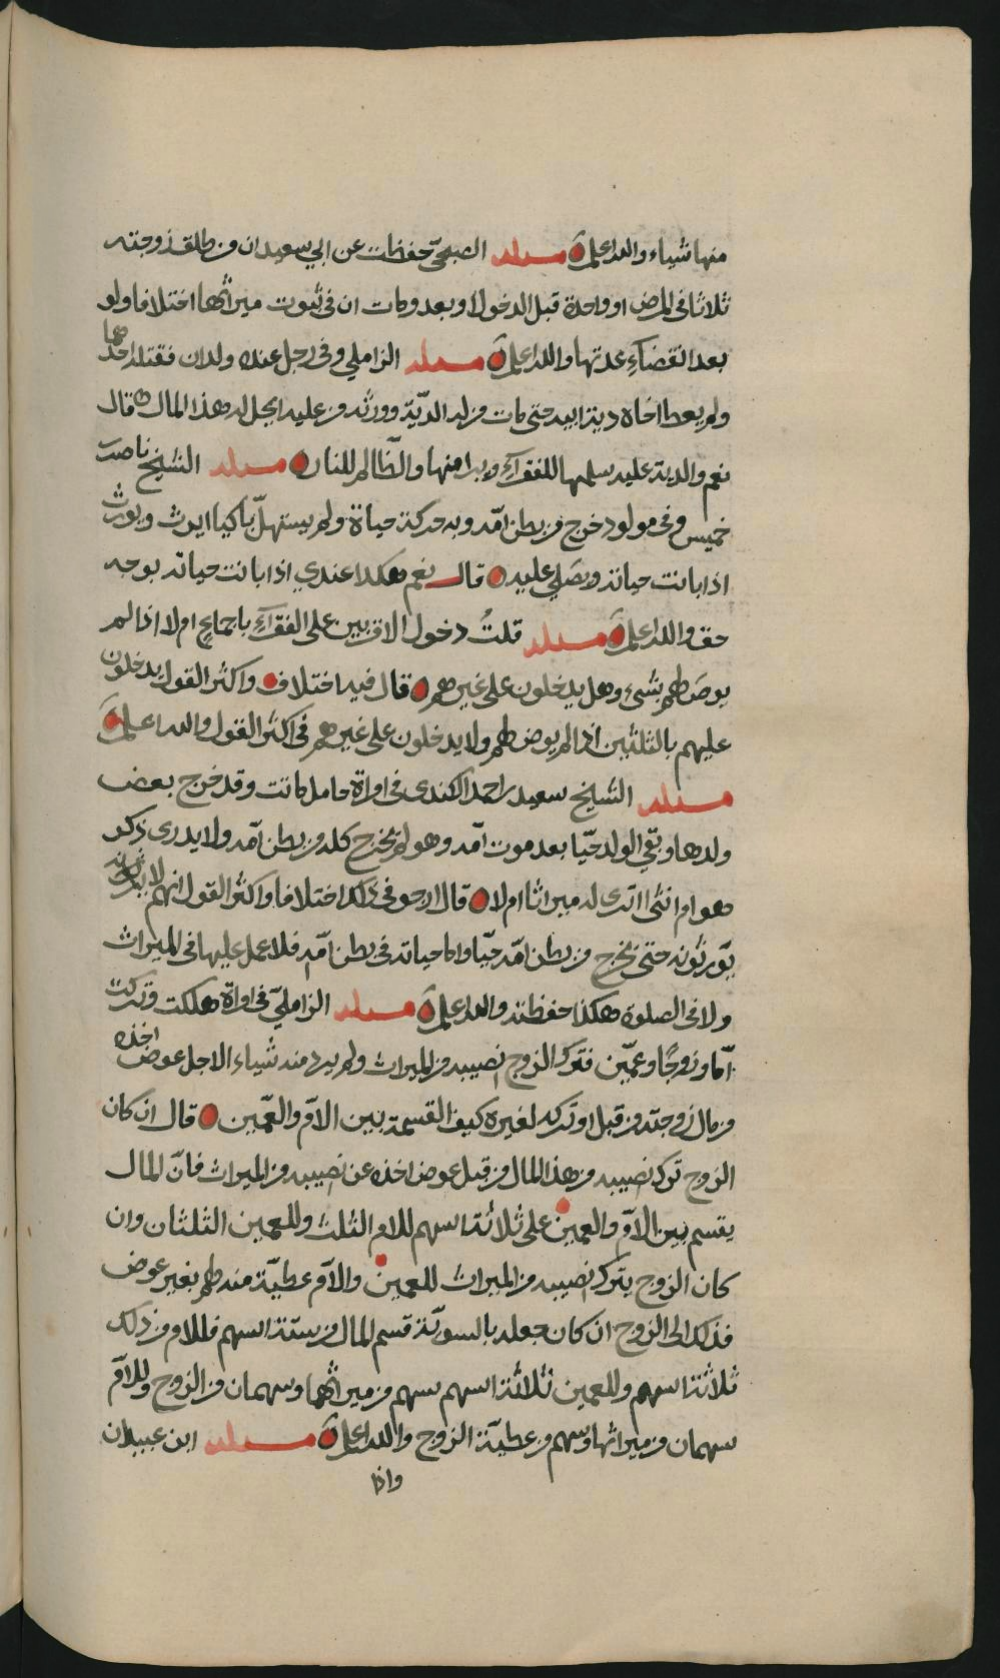 منها شياء والله اعلم مسئلة الصبحي حفظت عن ابي سعيد ان من طلق زوجته
ثلاثا في المرض او واحدة قبل الدخول او بعد ومات ان في ثبوت ميراثها اختلافا ولو
بعد انقضاء عدتها والله اعلم مسئلة الزاملي وفي رجل عنده ولدان فقتله احدهما
ولم يعط اخاه دية ابيه حتى مات من له الدية وورثه من عليه ايحل له هذا المال قال
نعم والدية عليه سلمها للفقراء وبرا منها والظالم للنار مسئلة الشيخ ناصر بن
خميس وفي مولود خرج من بطن امه وبه حركة حياة ولم يستهل باكيا ايرث ويورث
اذا بانت حياته ويصلى عليه قال نعم هكذا عندي اذا بانت حياته بوجه
حق والله اعلم مسئلة قلت دخول الاقربين على الفقراء باجماع ام لا اذا لم
يوص لهم بشيء وهل يدخلون على غيرهم قال فيه اختلاف واكثر القول يدخلون
عليهم بالثلثين اذا لم يوص لهم ولا يدخلون على غيرهم في اكثر القول والله اعلم
مسئلة الشيخ سعيد بن احمد الكندي في امراة حامل ماتت وقد خرج بعض
ولدها وبقي الولد حيا بعد موت امه وهو لم يخرج كله من بطن امه ولا يدرى ذكر
هو ام انثى اترى له ميراثا ام لا قال ارجو في ذلك اختلافا واكثر القول انهم لا
يورثونه حتى يخرج من بطن امه حيا واما حياته في بطن امه فلا عمل عليها في الميراث
ولا في الصلوة هكذا حفظته والله اعلم مسئلة الزاملي في امراة هلكت وتركت
اما وزوجا وعمين فترك الزوج نصيبه من الميراث ولم يرد منه شياء الاجل عوض اخذه
من مال زوجته من قبل او تركه لغيره كيف القسمة بين الام والعمين قال ان كان
الزوج ترك نصيبه من هذا المال من قبل عوض اخذه عن نصيبه من الميراث فان المال
يقسم بين الام والعمين على ثلاثة اسهم للام الثلث وللعمين الثلثان وان
كان الزوج يترك نصيبه من الميراث للعمين والام عطية منه لهم بغير عوض
فذلك الى الزوج ان كان جعله بالسوية قسم المال من ستة اسهم فللام من ذلك
ثلاثة اسهم وللعمين ثلاثة اسهم سهم من ميراثهما وسهمان من الزوج وللام
سهمان من ميراثها وسهم من عطية الزوج والله اعلم مسئلة ابن عبيدان
واذا